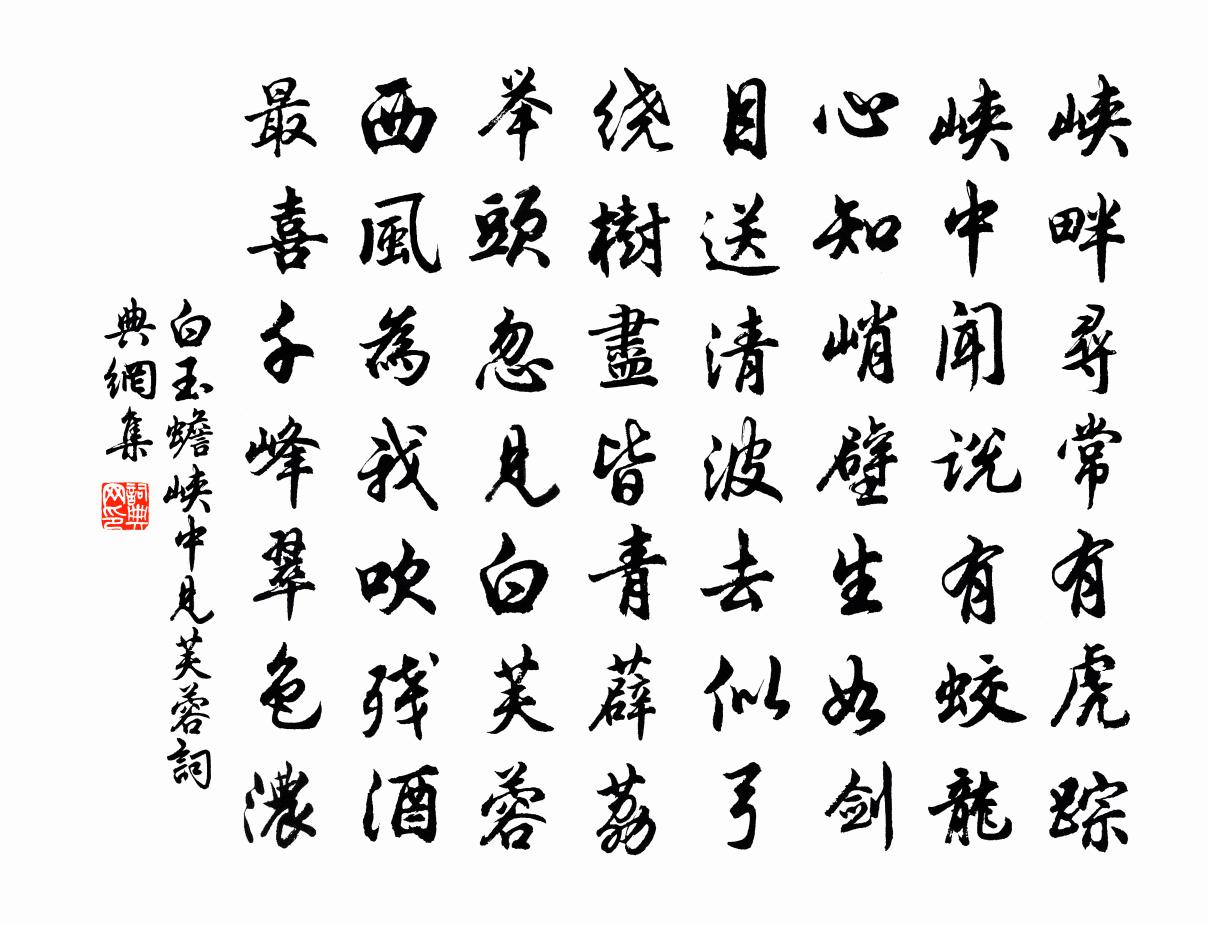 峡畔尋常有虎踪
峡中闻说有蛟龍
心知峭壁生如剑
目送清波去似弓
绕樹盡皆青薜荔
举頭忽見白芙蓉
西風為我吹残酒
最喜千峰翠色濃
白玉蟾峡中見芙蓉詞
典網集
詞典
网印